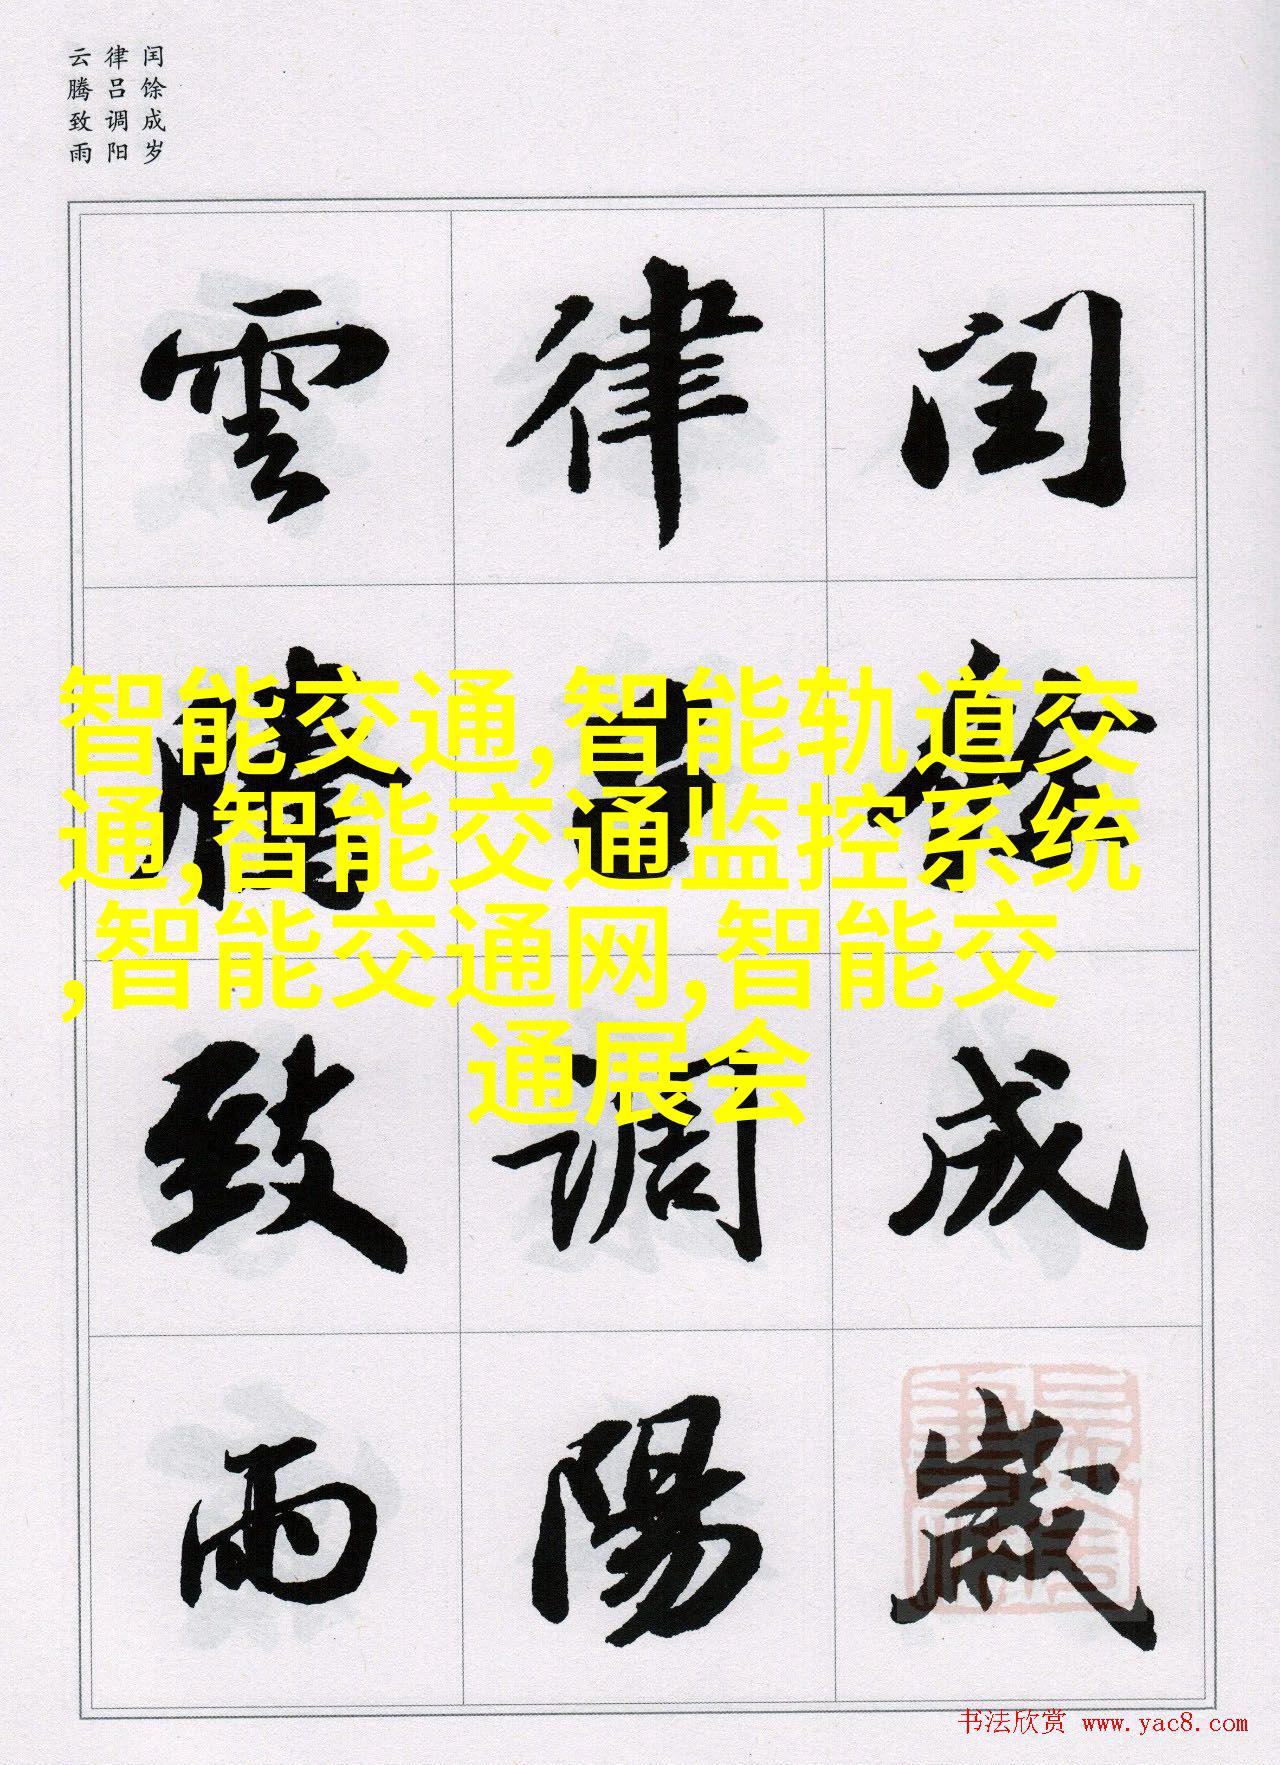 闰馀成岁
律吕调阳
云腾致雨
閏餘成歲
律呂調陽
雲騰致雨
智能交通,智能轨道交
通,智能交通监控系统
,智能交通网,智能交
通展会
书法欣赏 www.yac8.com